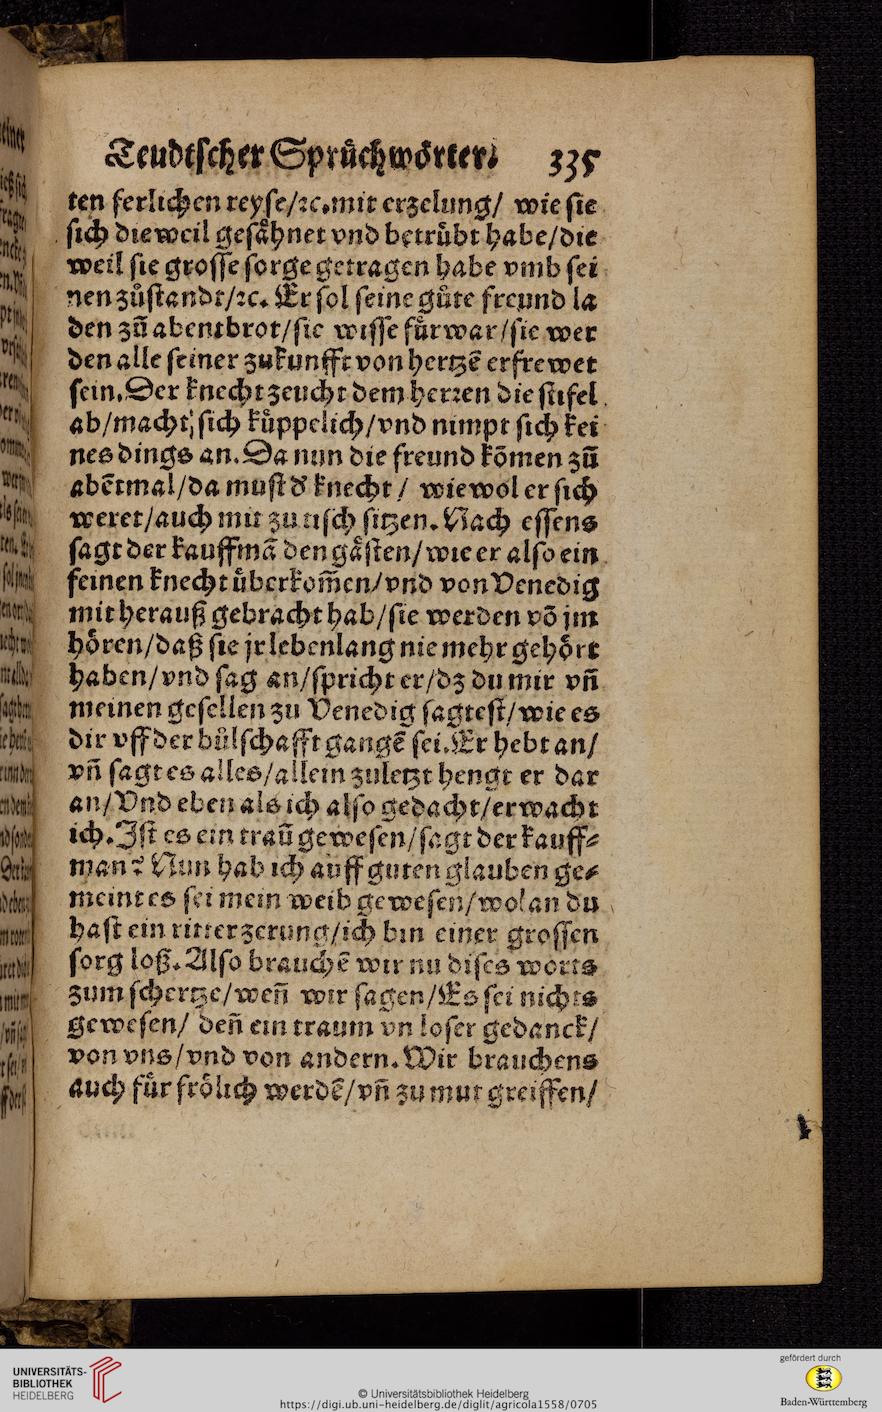 Teudtscher Sprüchwörter. 335
ten ferlichen reyse/ꝛc. mit erzelung/ wie sie
sich dieweil gesåhnet vnd betrübt habe/die
weil sie grosse sorge getragen habe vmb sei
nen zůstandt/ꝛc. Er sol seine gůte freund la
den zů abentbrot/sie wisse fürwar/sie wer
den alle seiner zukunfft von hertzē erfrewet
sein. Der knecht zeucht dem herꝛen die stifel
ab/macht sich küppelich/vnd nimpt sich kei
nes dings an. Da nun die freund kõmen zů
abẽtmal/da must d' knecht/ wiewol er sich
weret/auch mit zu tisch sitzen. Nach essens
sagt der kauffmã den gåsten/wie er also ein
feinen knecht überkom̃en/vnd von Venedig
mit herauß gebracht hab/sie werden võ jm
hören/daß sie jr lebenlang nie mehr gehört
haben/vnd sag an/spricht er/dz du mir vñ
meinen gesellen zu Venedig sagtest/wie es
dir vff der bůlschafft gangē sei. Er hebt an/
vñ sagt es alles/allein zuletzt hengt er dar
an/Vnd eben als ich also gedacht/erwacht
ich. Jst es ein traũ gewesen/sagt der kauff⸗
man? Nun hab ich auff guten glauben ge⸗
meint es sei mein weib gewesen/wolan du
hast ein ritterzerung/ich bin einer grossen
sorg loß. Also brauchē wir nu dises worts
zum schertze/weñ wir sagen/Es sei nichts
gewesen/ deñ ein traum vn loser gedanck/
von vns/vnd von andern. Wir brauchens
auch für frölich werdē/vñ zu mut greiffen/
UNIVERSITÄTS-
BIBLIOTHEK
HEIDELBERG
© Universitätsbibliothek Heidelberg
https://digi.ub.uni-heidelberg.de/diglit/agricola1558/0705
gefördert durch
Baden-Württemberg